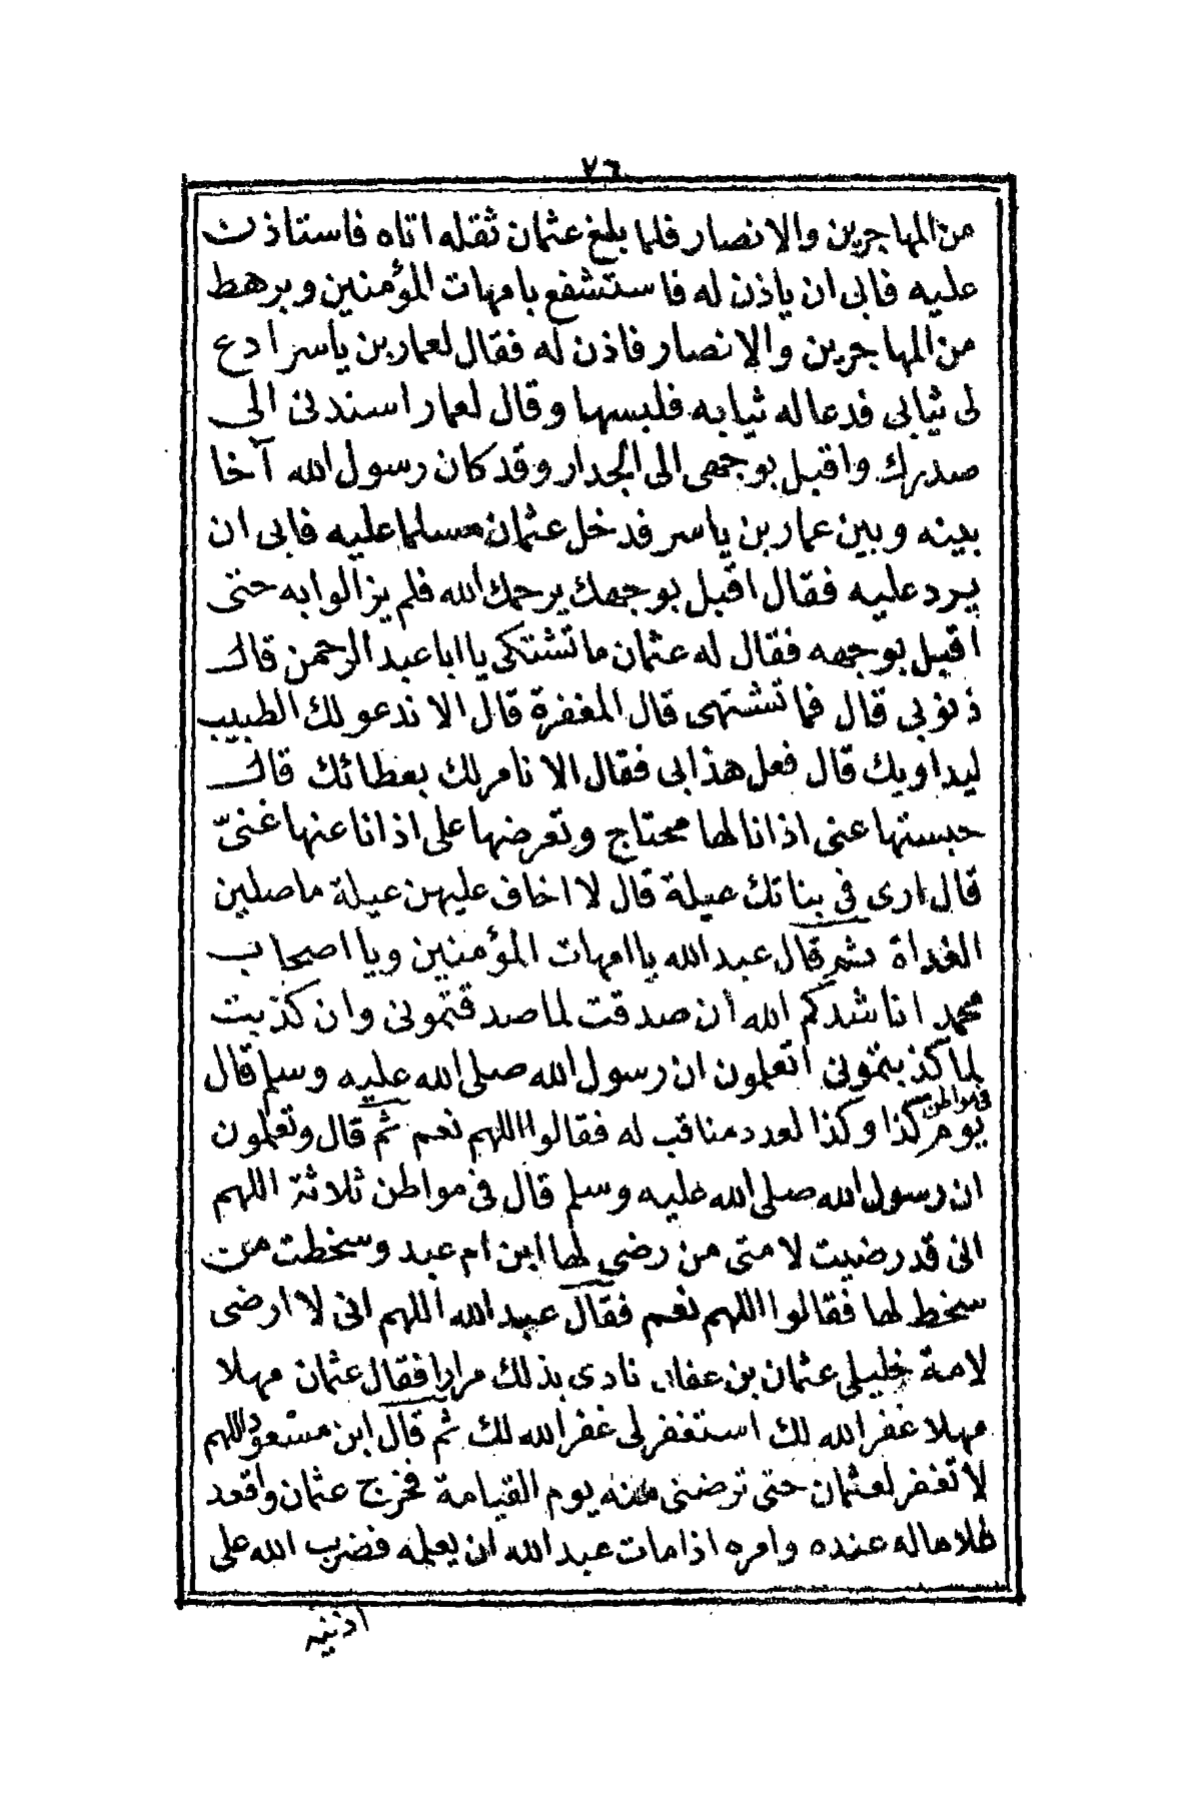 ٧٦
من المهاجرين والانصار فلما بلغ عثمان ثقله اتاه فاستاذن
عليه فابى ان ياذن له فاستشفع بامهات المؤمنين وبرهط
من المهاجرين والانصار فاذن له فقال لعمار بن ياسر ادع
لى ثيابى فدعا له ثيابه فلبسها وقال لعمار اسندنى الى
صدرك واقبل بوجهى الى الجدار وقد كان رسول الله آخا
بينه وبين عمار بن ياسر فدخل عثمان مسلما عليه فابى ان
يرد عليه فقال اقبل بوجهك يرحمك الله فلم يزالوا به حتى
اقبل بوجهه فقال له عثمان ما تشتكى يا ابا عبد الرحمن قال
ذنوبى قال فما تشتهى قال المغفرة قال الا ندعو لك الطبيب
ليداويك قال فعل هذا بى فقال الا نامر لك بعطائك قال
حبستها عنى اذ انا لها محتاج وتعرضها على اذ انا عنها غنىّ
قال ارى فى بناتك عيلة قال لا اخاف عليهن عيلة ما صلين
الغداة ثم قال عبد الله يا امهات المؤمنين ويا اصحاب
محمد اناشدكم الله ان صدقت لما صدقتمونى وان كذبت
لما كذبتمونى اتعلمون ان رسول الله صلى الله عليه وسلم قال
فى مواطن
يوم كذا وكذا لعدد مناقب له فقالوا اللهم نعم ثم قال وتعلمون
ان رسول الله صلى الله عليه وسلم قال فى مواطن ثلاثة اللهم
انى قد رضيت لامتى من رضى لها ابن ام عبد وسخطت من
سخط لها فقالوا اللهم نعم فقال عبد الله اللهم انى لا ارضى
لامة خليلى عثمان بن عفان نادى بذلك مرارا فقال عثمان مهلا
مهلا غفر الله لك استغفر لى غفر الله لك ثم قال ابن مسعود اللهم
لا تغفر لعثمان حتى ترضنى منه يوم القيامة فخرج عثمان واقعد
غلاما له عنده وامره اذا مات عبد الله ان يعلمه فضرب الله على
اذنيه